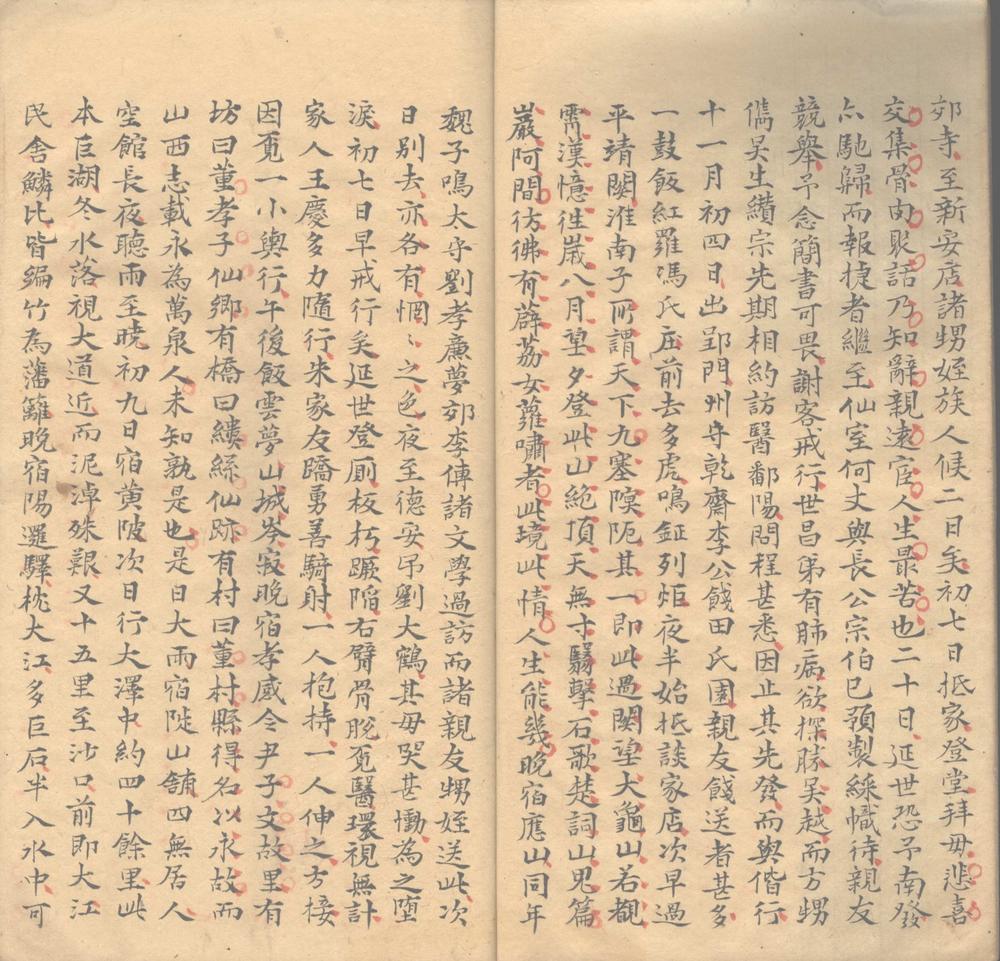 郊寺至新安店諸甥姪族人候二日矣初七日抵家登堂拜母悲喜
交集骨肉叙話乃知辭親遠宦人生最苦也二十日延世恐予南發
亦馳歸而報捷者繼至仙室何丈與長公宗伯已預製綵幟待親友
競舉予念簡書可畏謝客戒行世昌弟有肺病欲探勝吳越而方甥
儁吳生纘宗先期相約訪醫鄱陽問程甚悉因止其先發而與偕行
十一月初四日出郢門州守乾齋李公餞田氏園親友餞送者甚多
一鼓飯紅羅馮氏庄前去多虎鳴鉦列炬夜半始抵談家店次早過
平靖關淮南子所謂天下九塞隩阨其一即此過關望大龜山若覩
霄漢憶徃嵗八月望夕登此山絶頂天無寸翳擊石歌楚詞山鬼篇
巖阿間彷彿有薜荔女蘿嘯者此境此情人生能幾晚宿應山同年
魏子鳴太守劉孝廉夢郊李傅諸文學過訪而諸親友甥姪送此次
日别去亦各有惘〻之色夜至德安吊劉大鶴其母哭甚慟為之墮
淚初七日早戒行矣延世登厠板朽蹶陷右臂骨脫覓醫環視無計
家人王慶多力隨行朱家友蹻勇善騎射一人抱持一人伸之方接
因覓一小輿行午後飯雲夢山城岑寂晚宿孝感令尹子文故里有
坊曰董孝子仙鄉有橋曰縷絲仙跡有村曰董村縣得名以永故而
山西志載永為萬泉人未知孰是也是日大雨宿陡山舖四無居人
空館長夜聽雨至曉初九日宿黄陂次日行大澤中約四十餘里此
本巨湖冬水落視大道近而泥淖殊艱又十五里至沙口前即大江
民舍鱗比皆編竹為藩籬晚宿陽邏驛枕大江多巨石半入水中可